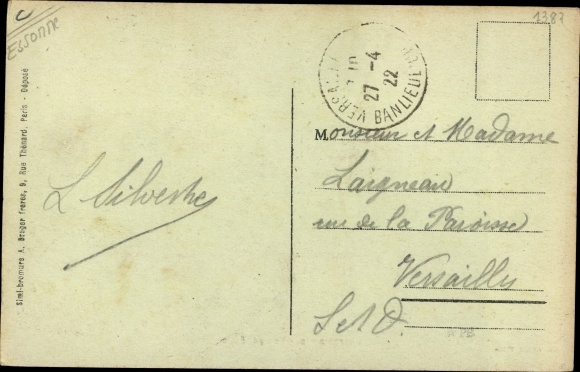 Essonne
1387
VERSAILLES BANLIEUE
27 -4
22
L Silvestre
Monsieur et Madame
Laigneau
rue de la Paroisse
Versailles
S et O.
Simi-bromure A. Breger frères, 9, Rue Thénard, Paris - Déposé